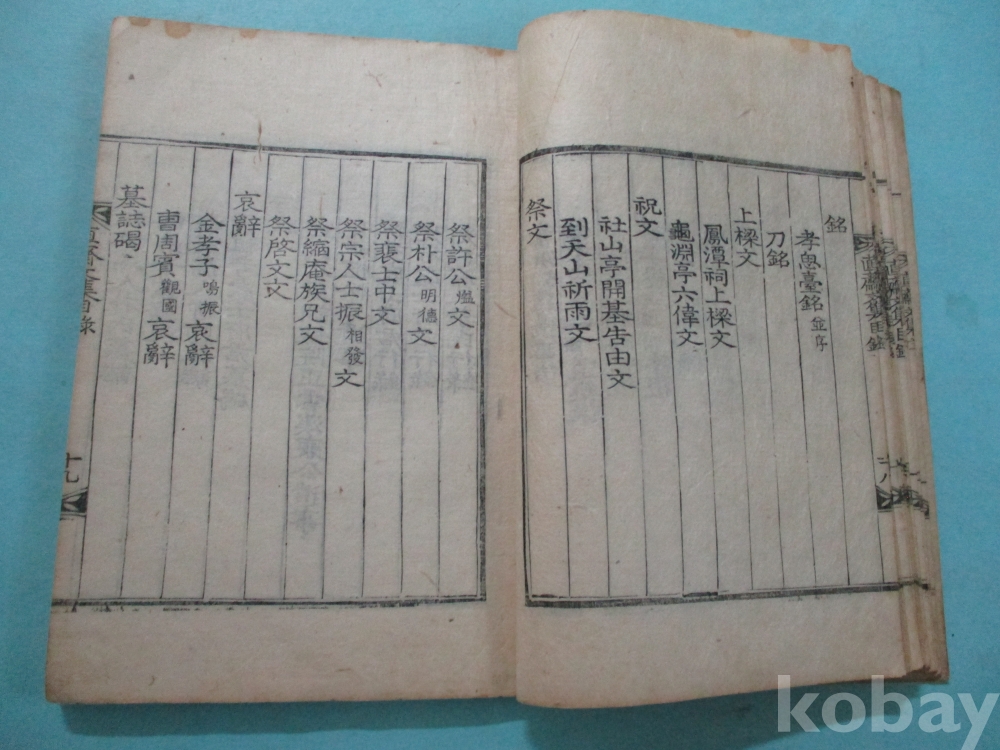 銘
孝思臺銘 並序
刀銘
上樑文
鳳潭祠上樑文
龜淵亭六偉文
祝文
社山亭開基告由文
到天山祈雨文
祭文
祭許公 燧 文
祭朴公 明德 文
祭裴士中文
祭宗人士振 相發 文
祭縮庵族兄文
祭啓文文
哀辭
金孝子 鳴振 哀辭
曺周賓 觀國 哀辭
墓誌碣
十八
十九
kobay